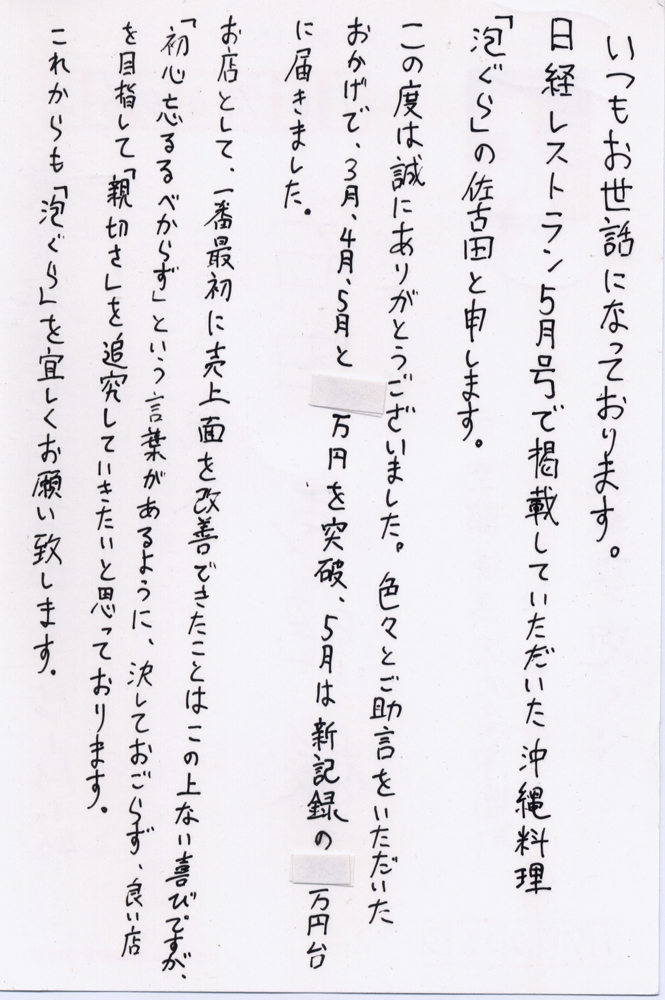 いつもお世話になっております。
日経レストラン5月号で掲載していただいた沖縄料理
「泡ぐら」の佐古田と申します。
この度は誠にありがとうございました。色々とご助言をいただいた
おかげで、3月、4月、5月と万円を突破、5月は新記録の万円台
に届きました。
お店として、一番最初に売上面を改善できたことはこの上ない喜びですが、
「初心忘るるべからず」という言葉があるように、決しておごらず、良い店
を目指して「親切さ」を追究していきたいと思っております。
これからも「泡ぐら」を宜しくお願い致します。